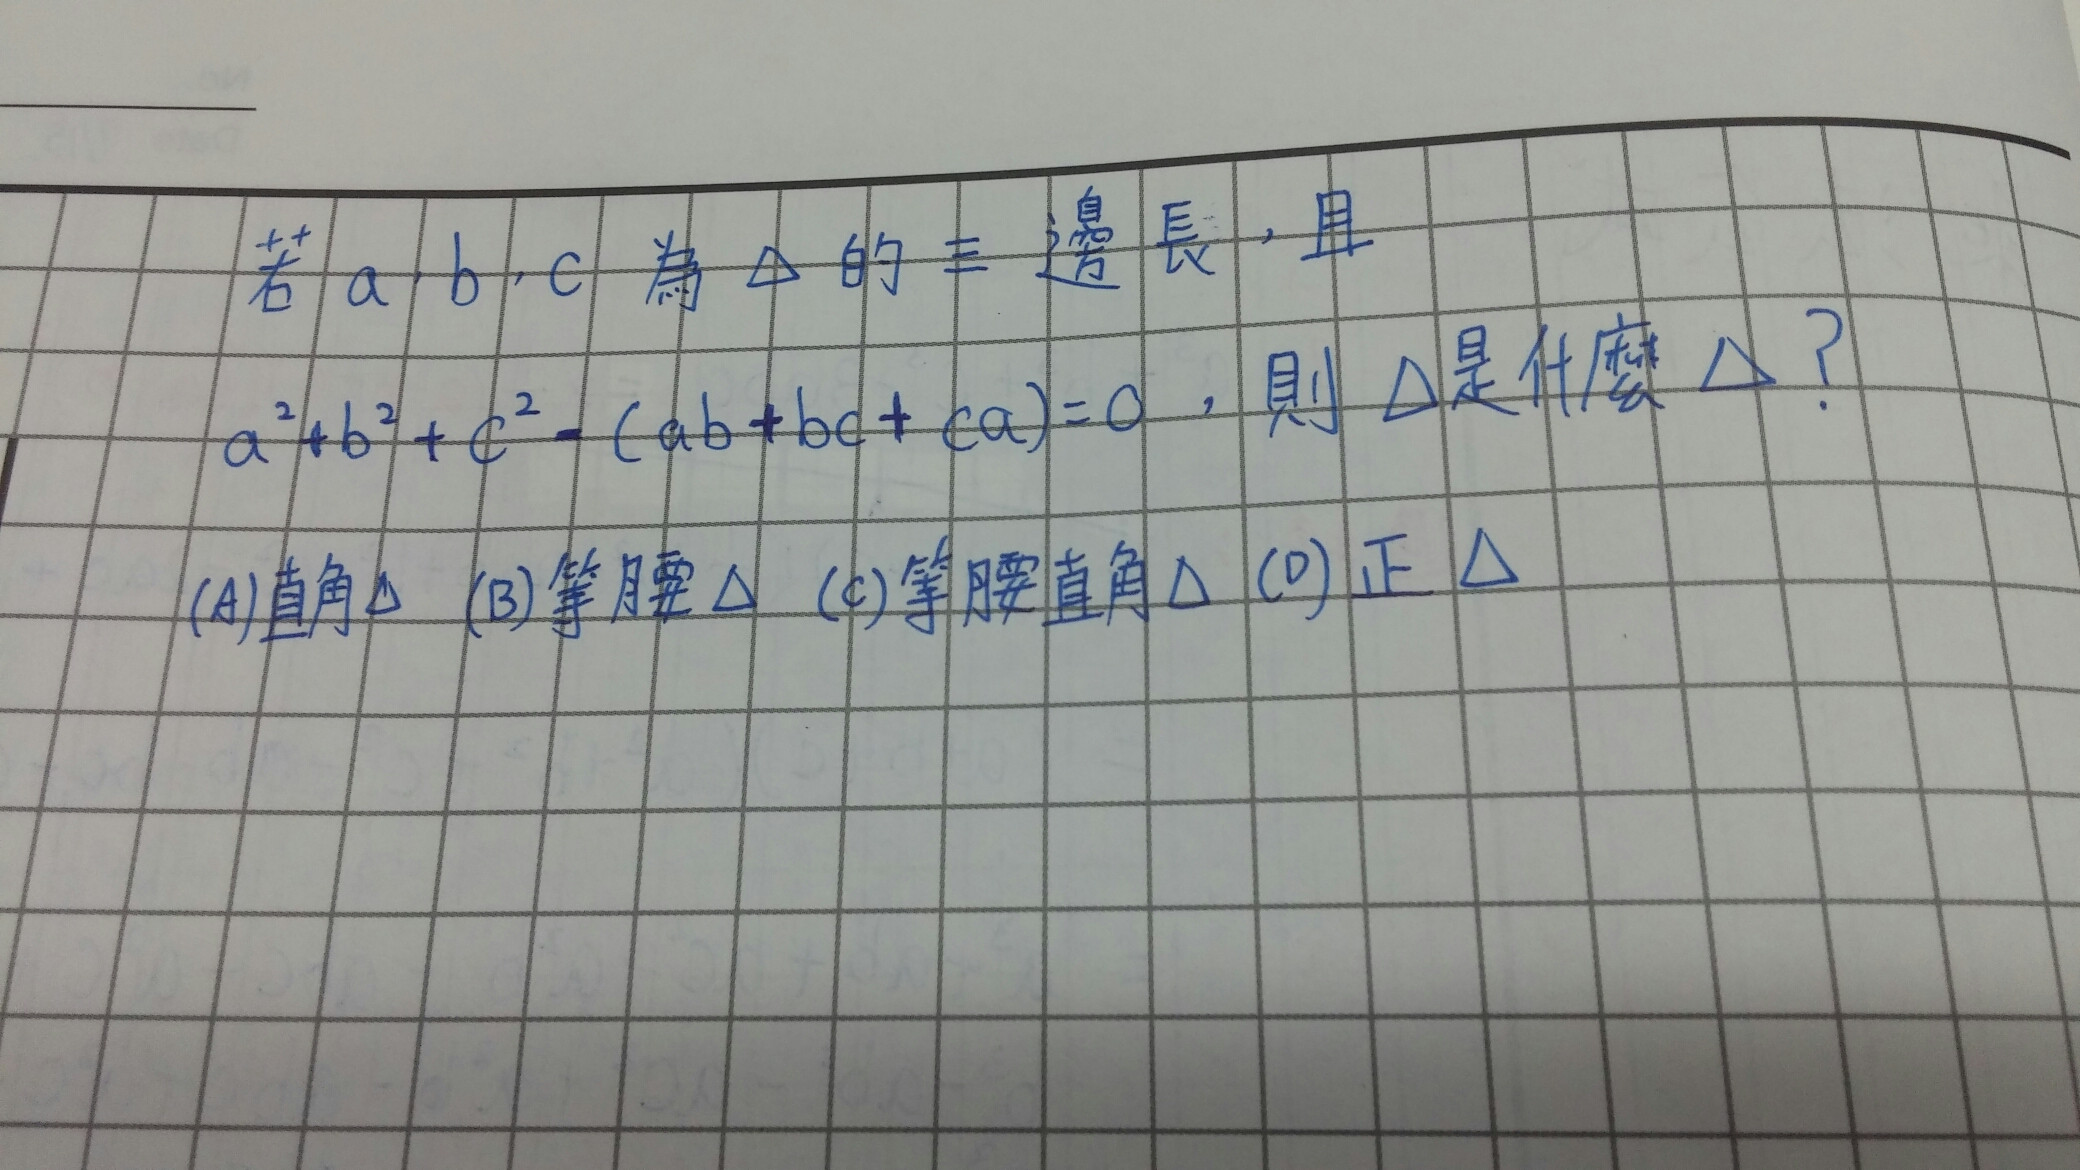 若 a, b, c 為 △ 的三邊長, 且
a²+b²+c²-(ab+bc+ca)=0, 則 △是什麼△?
(A)直角△ (B)等腰△ (C)等腰直角△ (D)正△